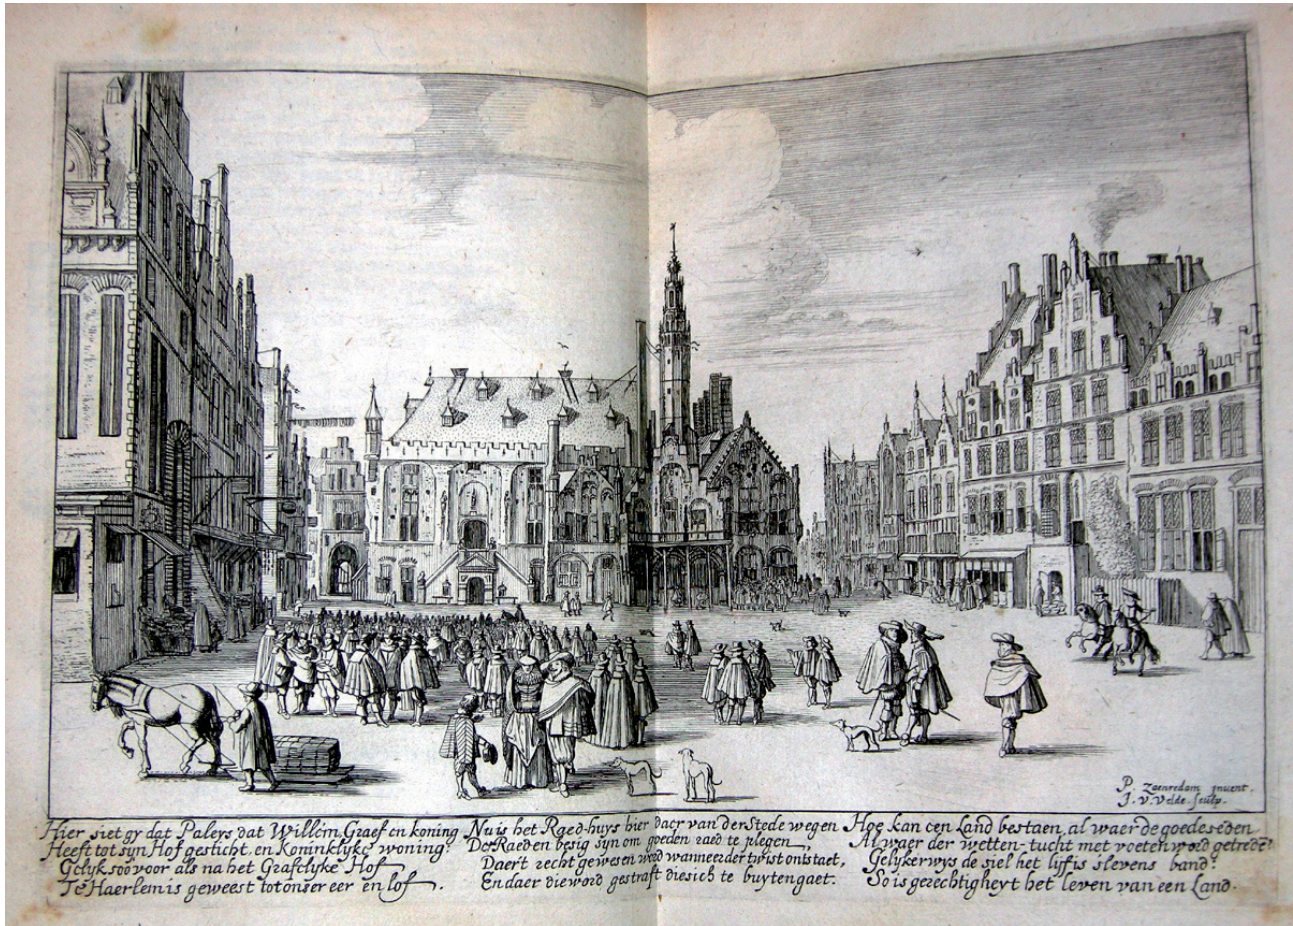 P. Zaenredam invent.
J. v. Velde. sculp.
Hier siet gy dat Paleys, dat Willem, Graef en koning
Heeft tot syn Hof gesticht, en Koninklyke woning
Gelyk soo voor als na het Graeflyke Hof
Te Haerlem is geweest tot onser eer en lof.
Nu is het Raed-huys hier daer van der Stede wegen
De Raeden besig syn om goeden raed te plegen,
Daer't recht gewesen word wanneer der twist ontstaet,
En daer die word gestraft die sich te buyten gaet.
Hoe kan een Land bestaen, al waer de goede seden
Al waer der wetten-tucht met voeten word getreden?
Gelykerwys de siel het lyf is s'levens band:
So is gerechtigheyt het leven van een Land.